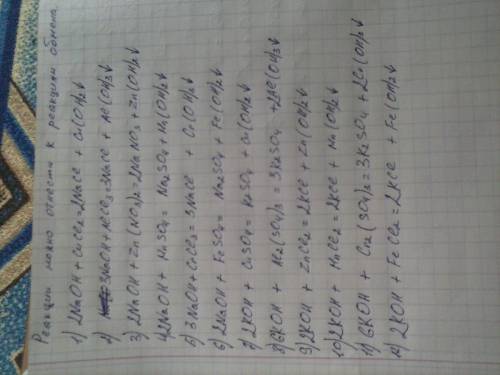 Реакции можно отнести к реакциям обмена.
1) 2NaOH + CuCl2 = 2NaCl + Cu(OH)2↓
2) 3NaOH + AlCl3 = 3NaCl + Al(OH)3↓
3) 2NaOH + Zn(NO3)2 = 2NaNO3 + Zn(OH)2↓
4) 2NaOH + MnSO4 = Na2SO4 + Mn(OH)2↓
5) 3NaOH + CrCl3 = 3NaCl + Cr(OH)3↓
6) 2NaOH + FeSO4 = Na2SO4 + Fe(OH)2↓
7) 2KOH + CuSO4 = K2SO4 + Cu(OH)2↓
8) 6KOH + Al2(SO4)3 = 3K2SO4 + 2Al(OH)3↓
9) 2KOH + ZnCl2 = 2KCl + Zn(OH)2↓
10) 2KOH + MnCl2 = 2KCl + Mn(OH)2↓
11) 6KOH + Cr2(SO4)3 = 3K2SO4 + 2Cr(OH)3↓
12) 2KOH + FeCl2 = 2KCl + Fe(OH)2↓